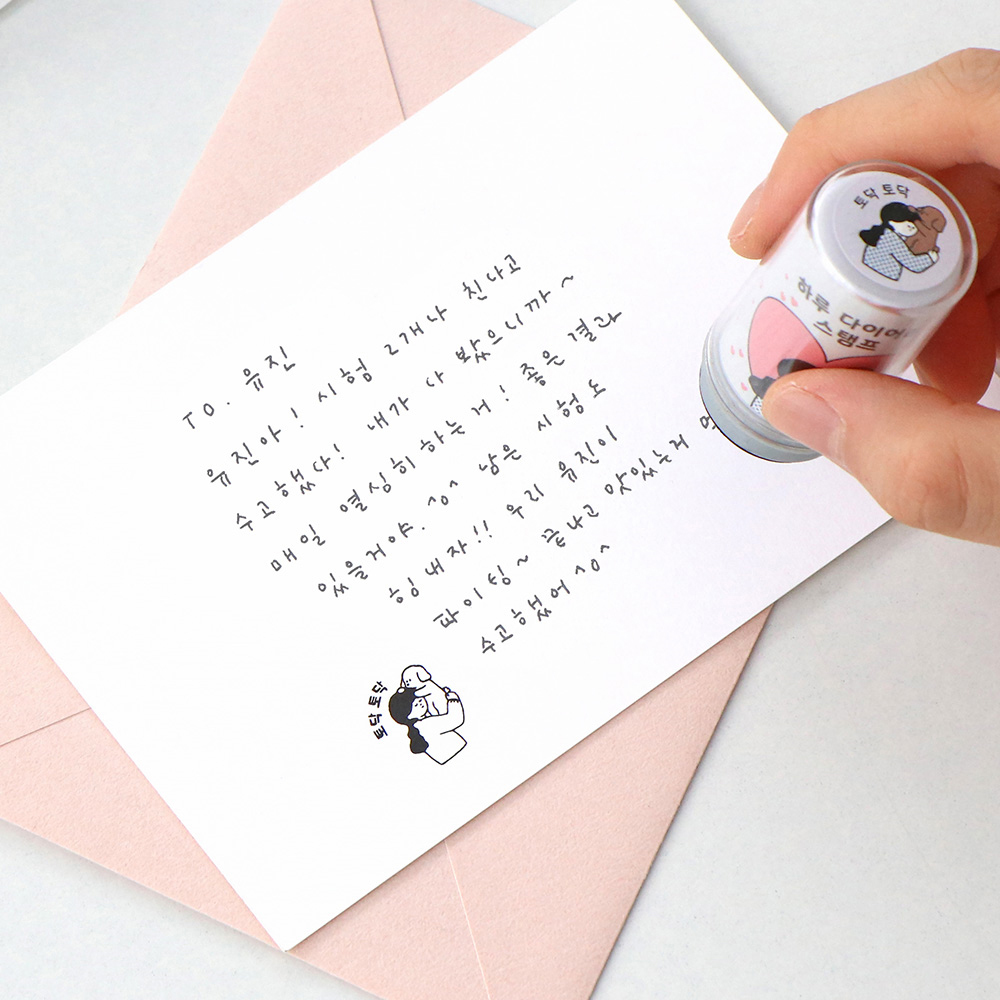 TO. 유진
유진아! 시험 2개나 친나고
수고했다! 내가 다 봤으니까~
매일 열심히 하는거! 좋은 결과
있을거야.^o^ 남은 시험도
힘내자!! 우리 유진이
파이팅~ 끝나고 맛있는거
수고했어^o^
토닥토닥
토닥토닥
하루 다이어
스탬프